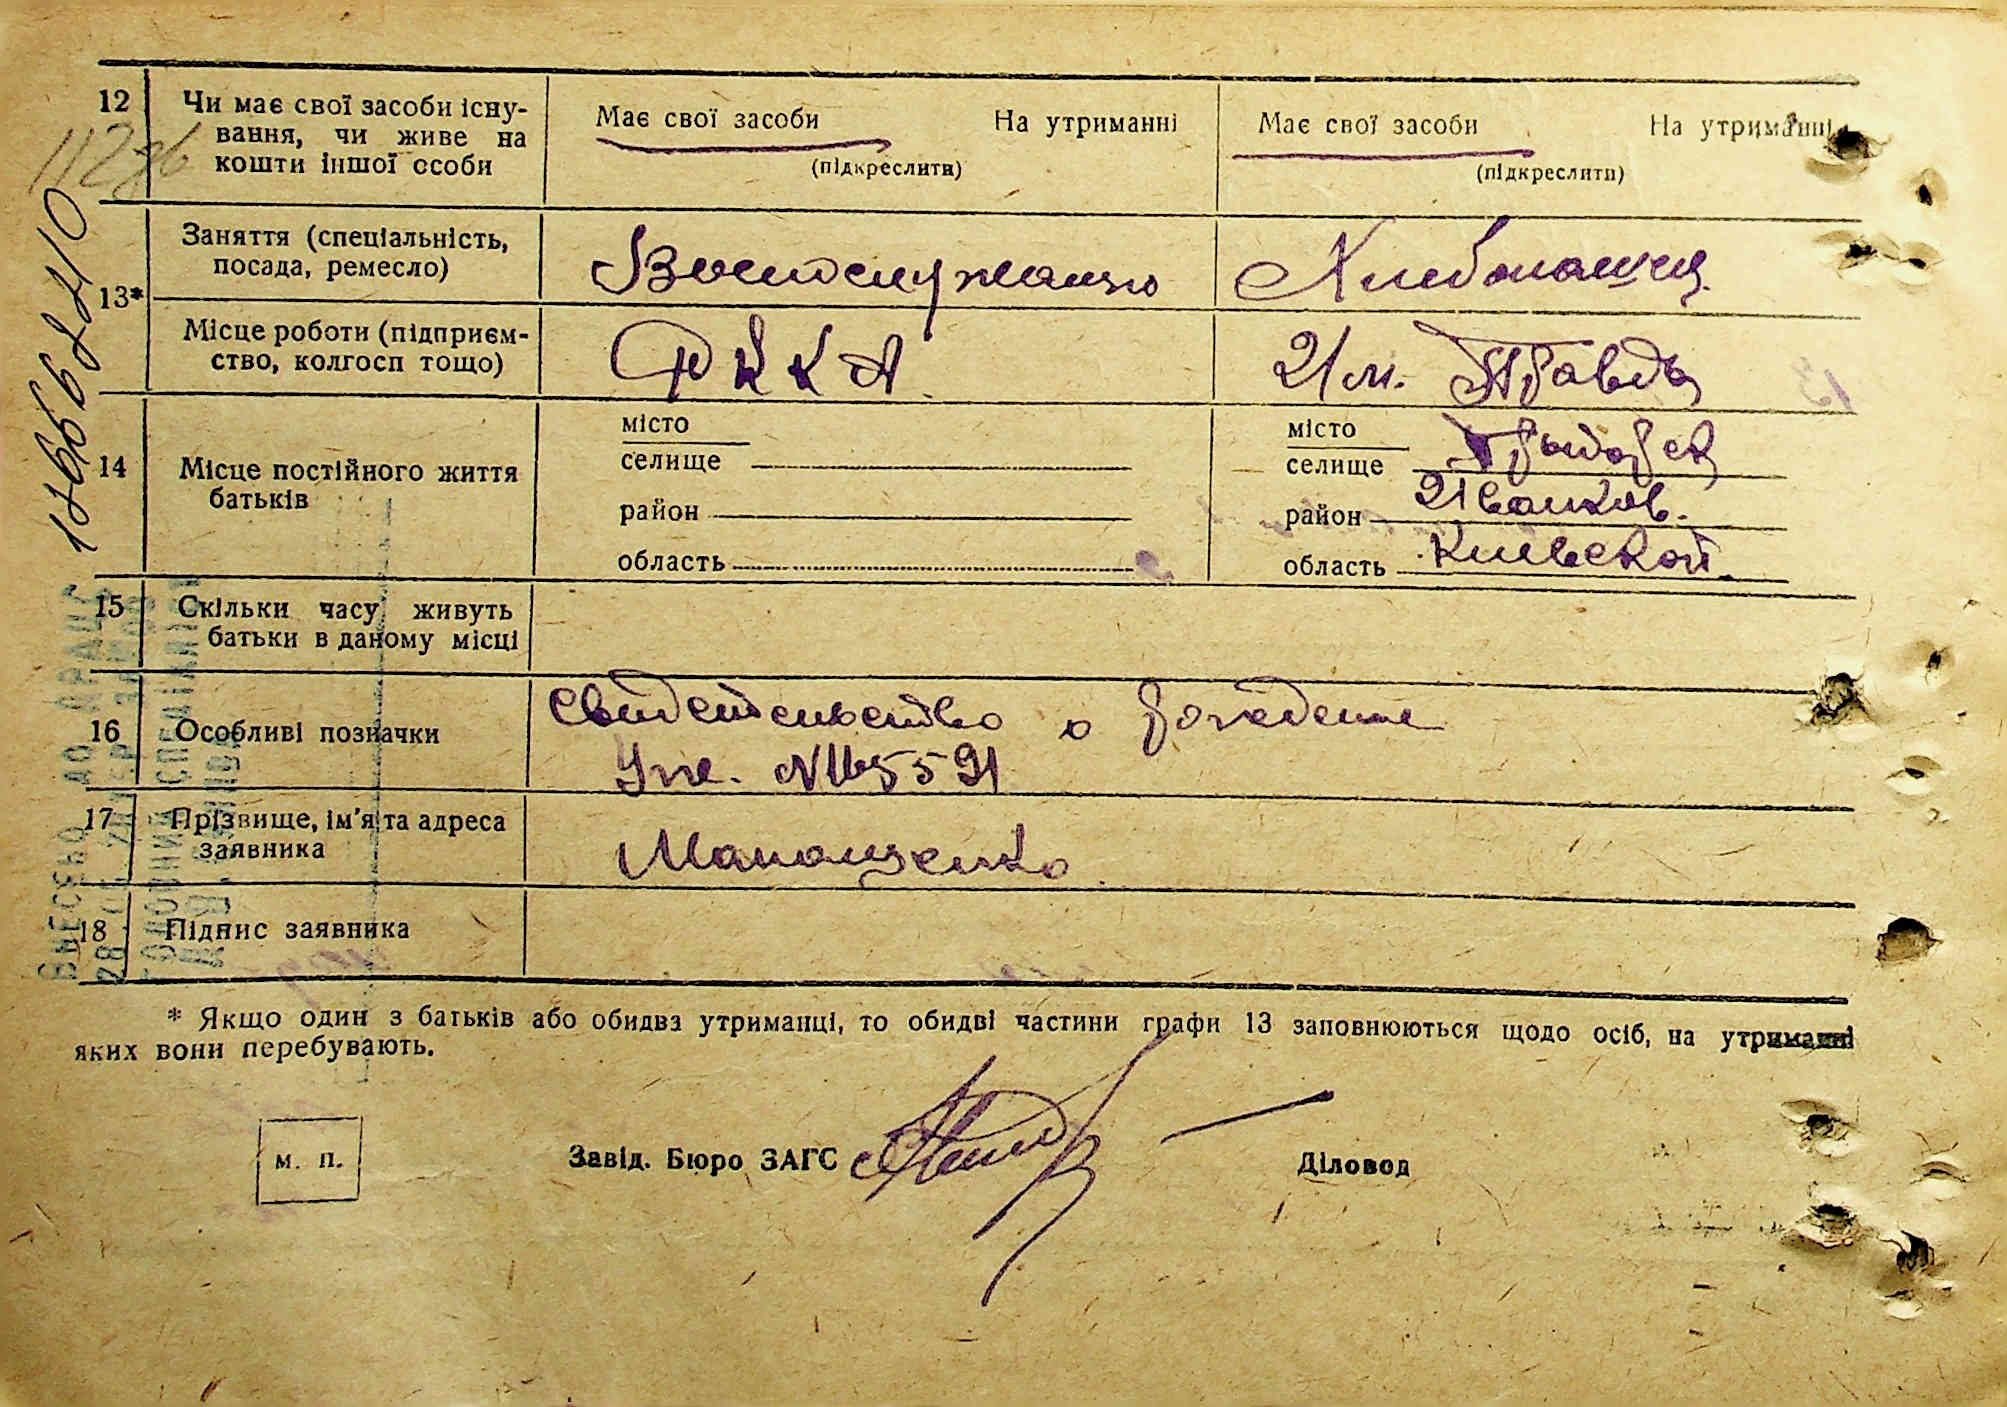 12
Чи має свої засоби існу-
вання, чи живе на
кошти іншої особи
Має свої засоби На утриманні
(підкреслити)
Має свої засоби На утриманні
(підкреслити)
112зв
13*
Заняття (спеціальність,
посада, ремесло)
Военослужащ
Хлебопашец
Місце роботи (підприєм-
ство, колгосп тощо)
РККА
Им. Правда
14
Місце постійного життя
батьків
місто
селище
район
область
місто
селище
район Иванков.
область Киевской
15
Скільки часу живуть
батьки в даному місці
16
Особливі позначки
Свидетельство о рождении
17
Прізвище, ім'я та адреса
заявника
18
Підпис заявника
* Якщо один з батьків або обидва утриманці, то обидві частини графи 13 заповнюються щодо осіб, на утриманні
яких вони перебувають.
м. п.
Завід. Бюро ЗАГС
Діловод